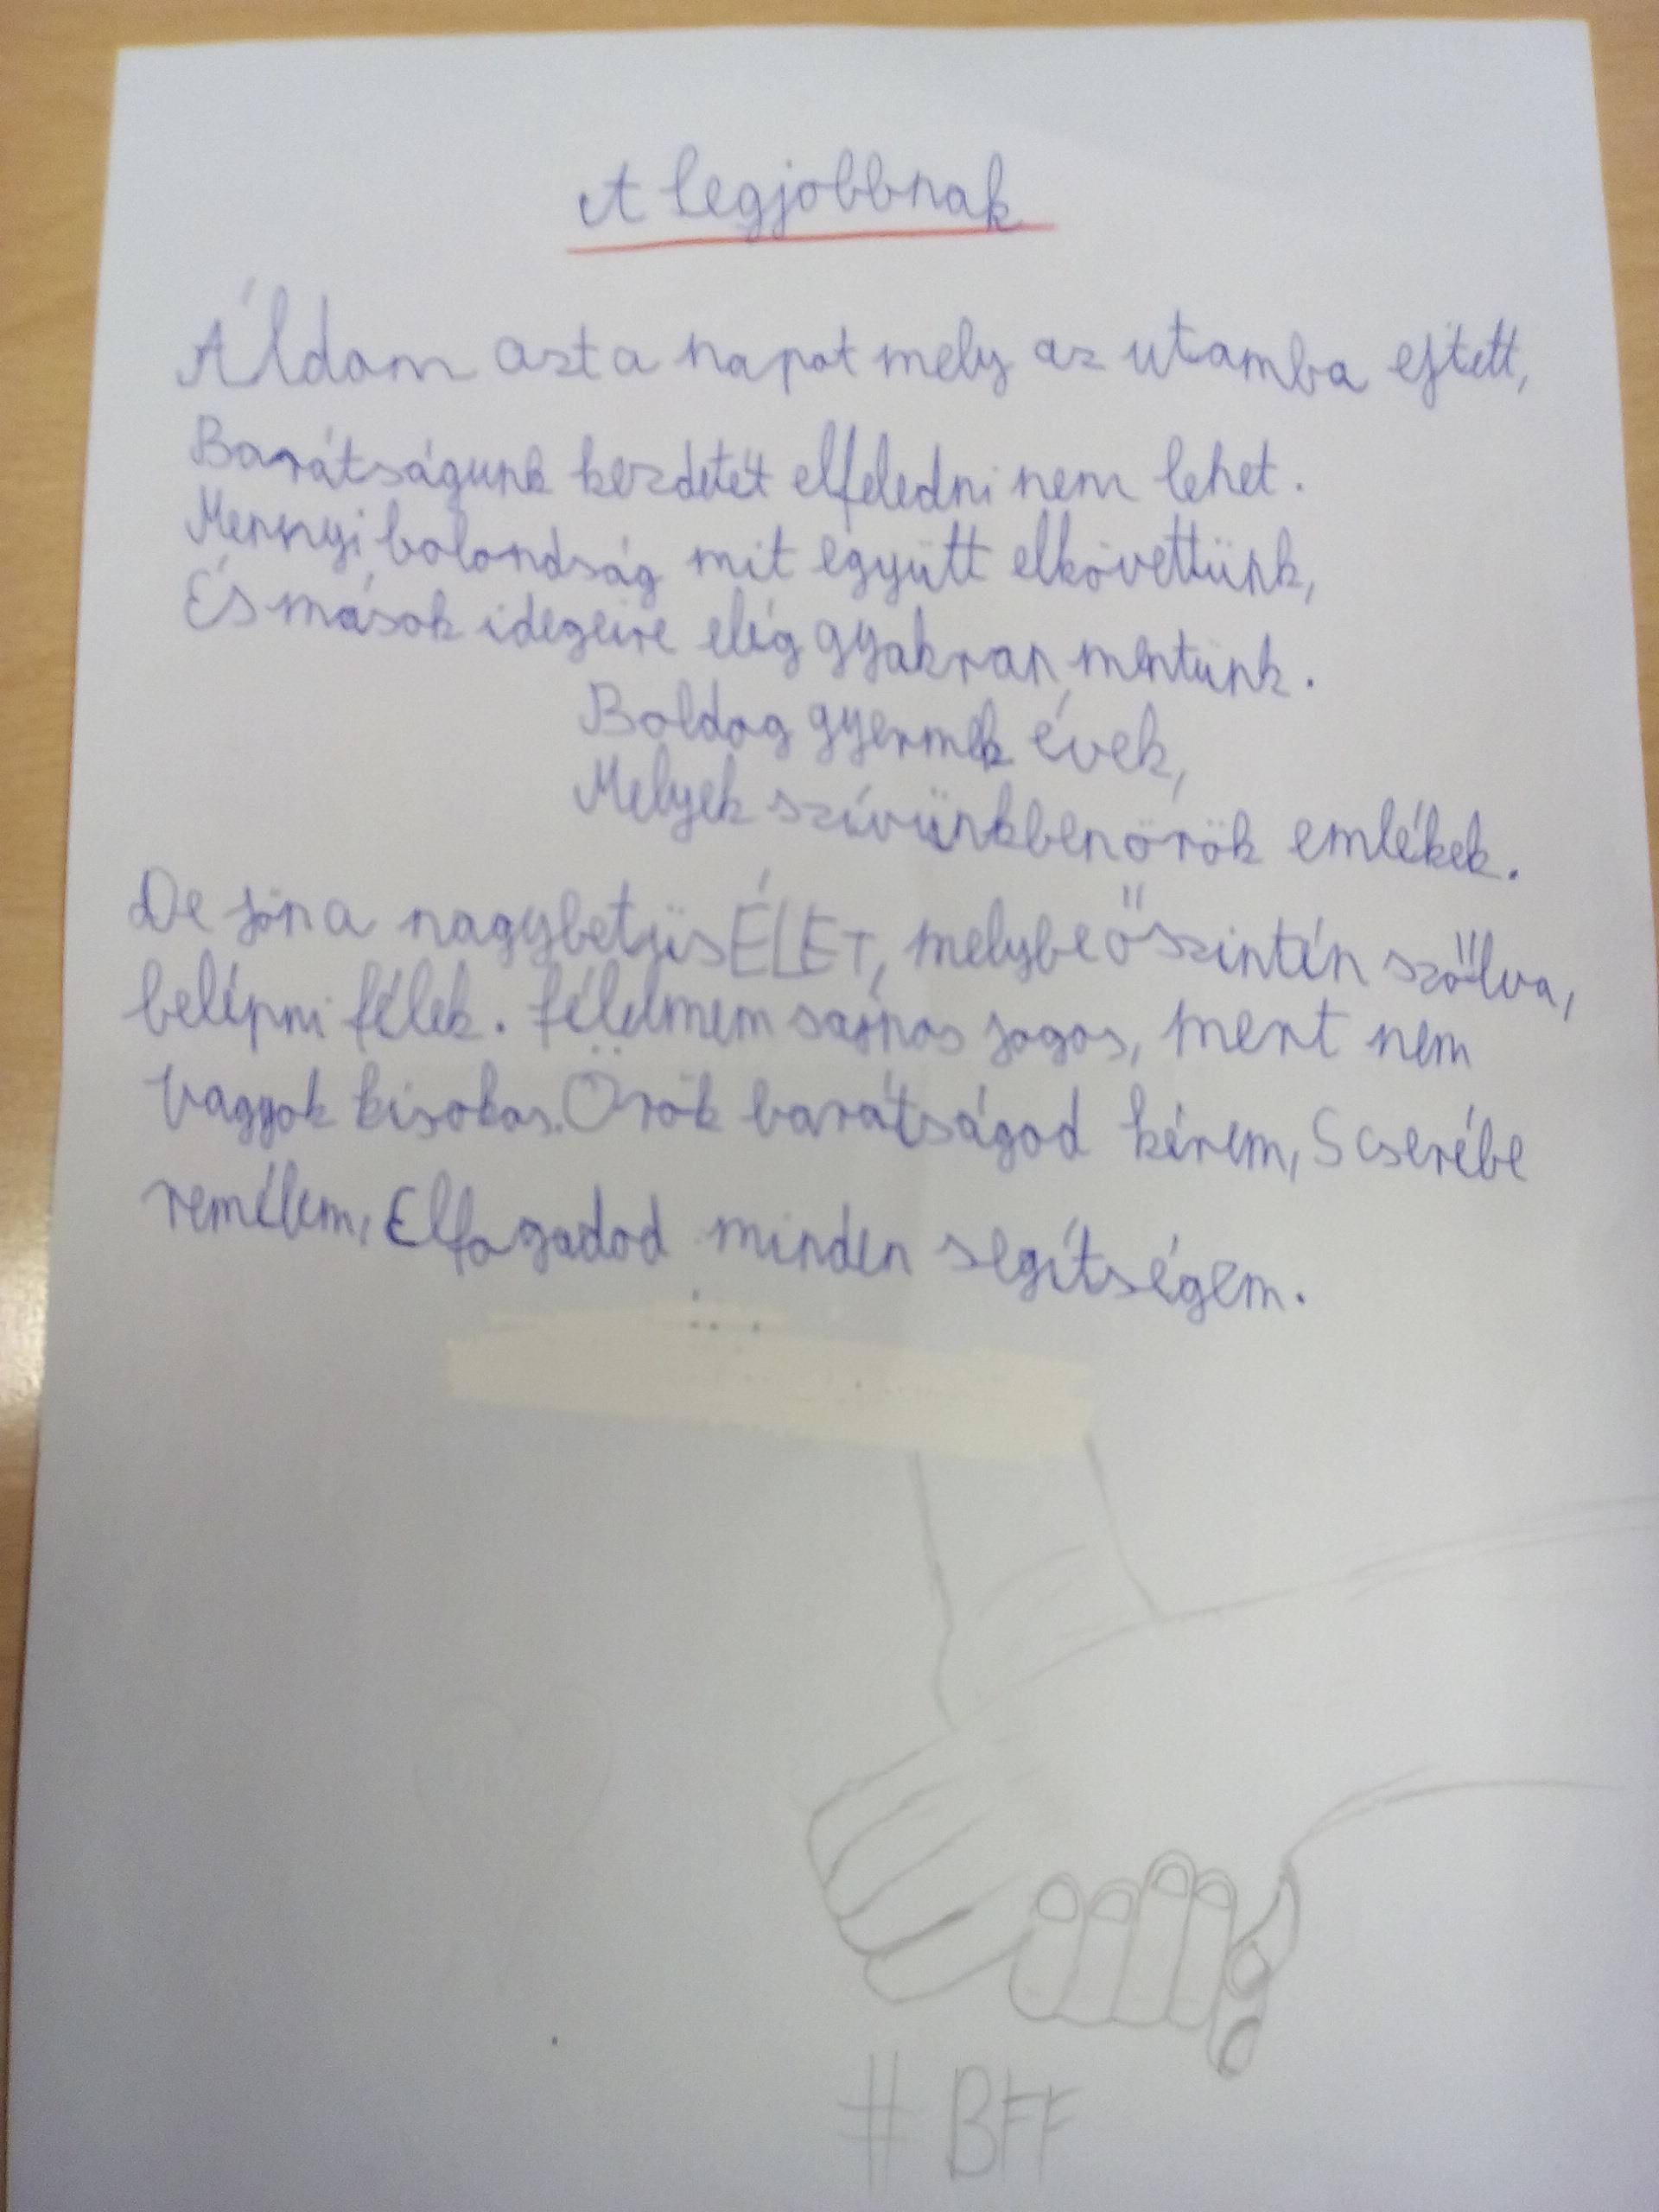 A legjobbnak
Áldom azt a napot mely az utamba ejtett,
Barátságunk kezdetét elfeledni nem lehet.
Mennyi bolondság mit együtt elkövettünk,
És mások idegeire elég gyakran mentünk.
Boldog gyermek évek,
Melyek szívünkben örök emlékek.
De jön a nagybetűs ÉLET, melybe őszintén szőlva,
belépni félek. félelmem sajnos jogos, mert nem
vagyok kisokos. Örök barátságod kérem, S cserébe
remélem, Elfogadod minden segítségem.
# BFF